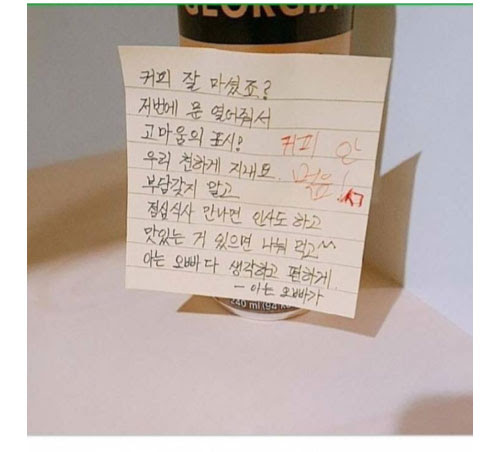 GEORGIA
커피 잘 마셨죠?
저번에 문 열어줘서
고마움의 표시?
우리 친하게 지내요.
부담갖지 말고
점심식사 만나면 인사도 하고
맛있는 거 있으면 나눠 먹고^^
아는 오빠다 생각하고 편하게.
- 아는 오빠가
커피 안
먹음!
240 ml